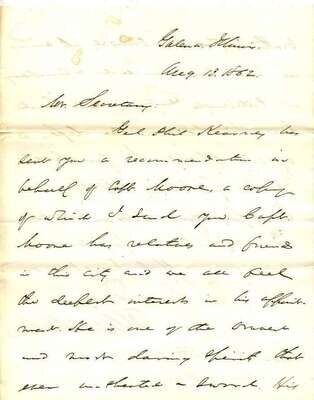 Galena, Illinois.
Aug 13. 1862.
Mr. Secretary:
Gel Phil Kearney has
sent you a recommendation in
behalf of Capt. Moore, a copy
of which I send you. Capt.
Moore has relatives and friends
in this city and we all feel
the deepest interest in his appoint-
ment. He is one of the truest
and most daring spirits that
ever unsheathed a sword. His